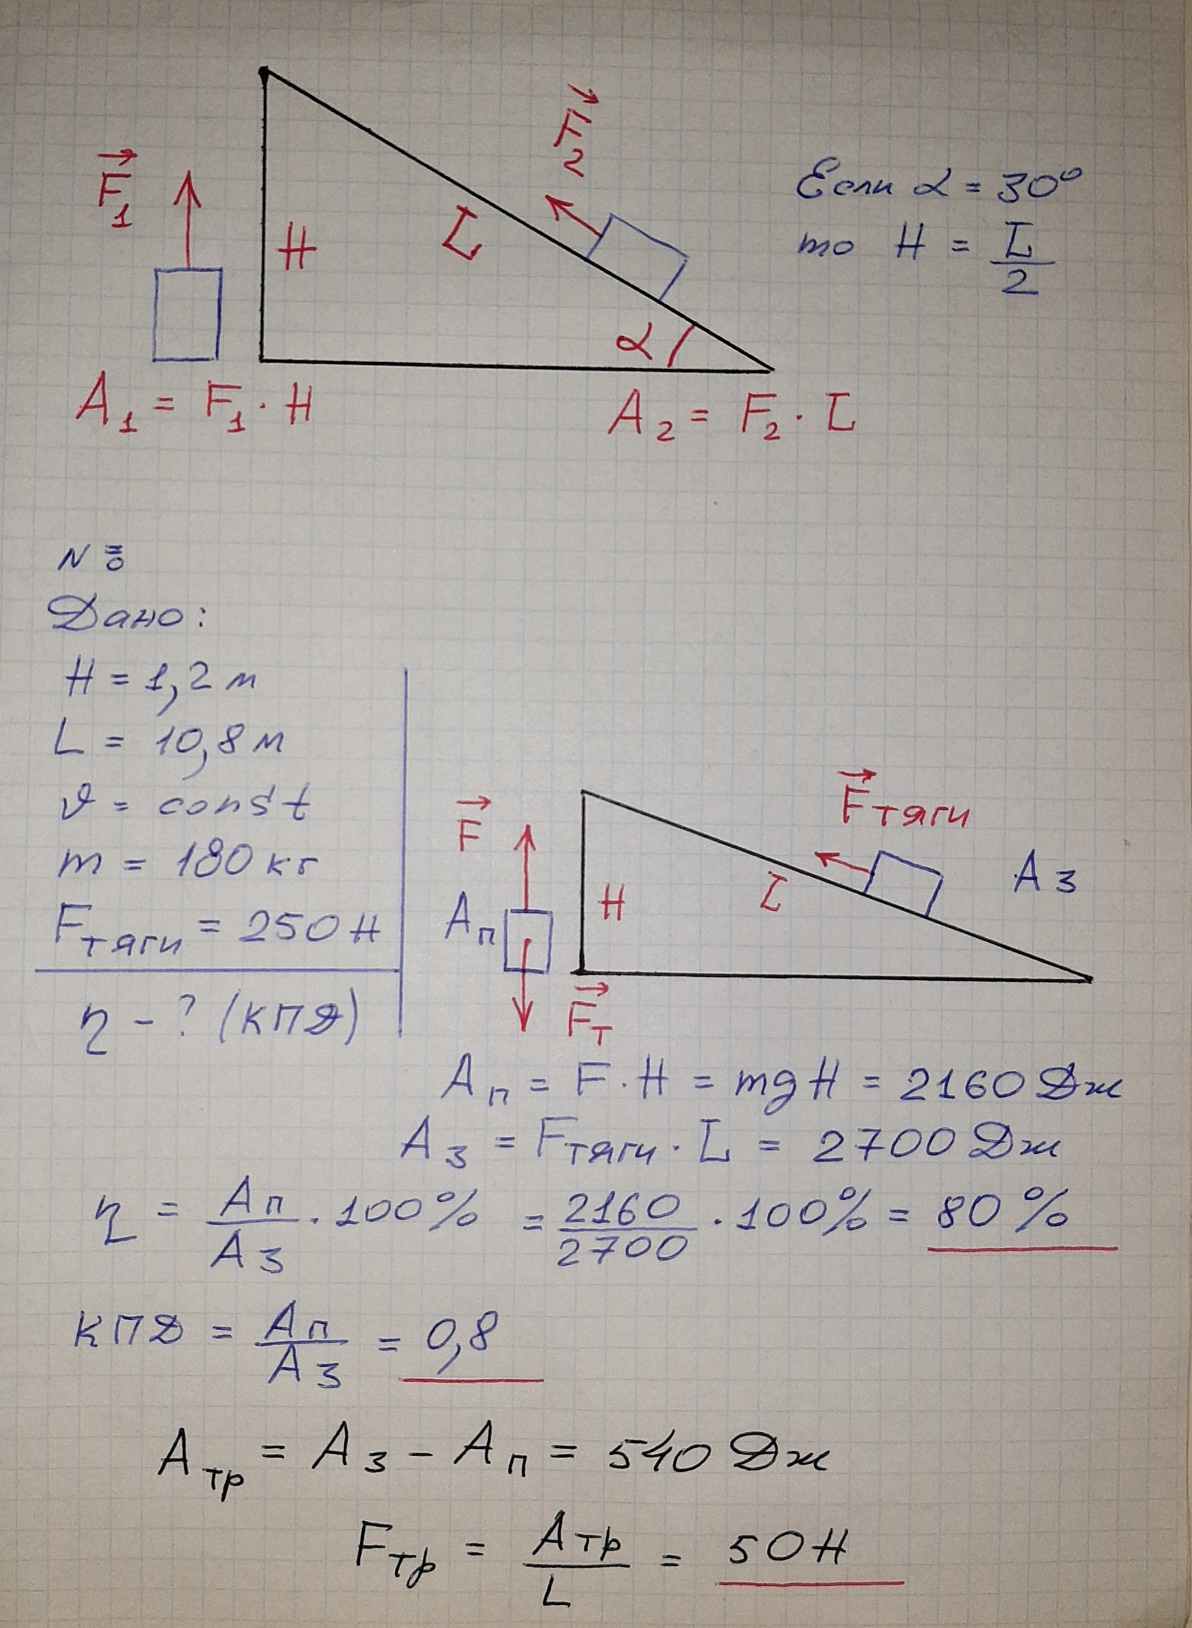 F₁
H
L
F₂
α
Если α = 30°
то H = L/2
A₁ = F₁ · H
A₂ = F₂ · L
Дано:
H = 1,2 м
L = 10,8 м
υ = const
m = 180 кг
Fтяги = 250 Н
η - ? (КПД)
F
Aп
H
L
Fтяги
Aз
Fт
Aп = F · H = mgH = 2160 Дж
Aз = Fтяги · L = 2700 Дж
η = Aп/Aз · 100% = 2160/2700 · 100% = 80%
КПД = Aп/Aз = 0,8
Aтр = Aз - Aп = 540 Дж
Fтр = Aтр/L = 50 Н